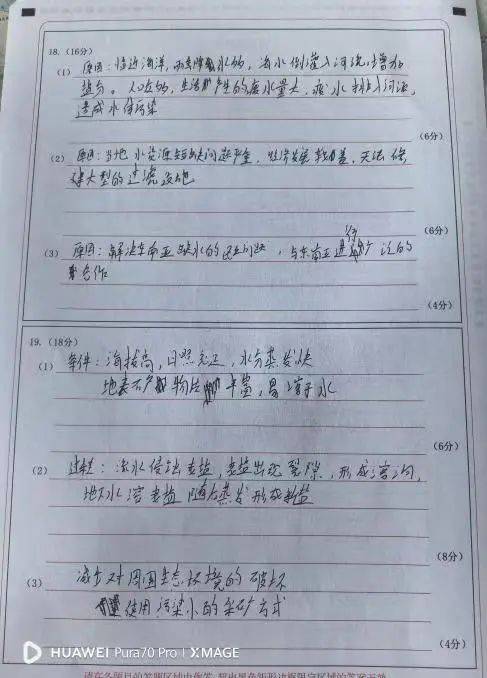 18. (16分)
(1) 原因：临近海洋，雨季降水的，海水倒灌入河流增加
盐分。人口众的，生活生产的废水量大，废水排入河流，
造成水体污染
(6分)
(2) 原因：当地水资源短缺问题严重，经济发展较差，无法
建大型的过滤设施
(6分)
(3) 原因：解决东南亚缺水的问题，与东南亚进行广泛的
合作
(4分)
19. (18分)
(1) 条件：海拔高，日照充足，水分蒸发快
地表矿物片丰富，易溶于水
(6分)
(2) 过程：流水侵蚀表盐，表盐出现裂隙，形成溶沟，
地下水溶表盐随后蒸发形成新盐
(8分)
(3) 减少对周围生态环境的破坏
使用污染小的采矿方式
(4分)
HUAWEI Pura70 Pro | XMAGE